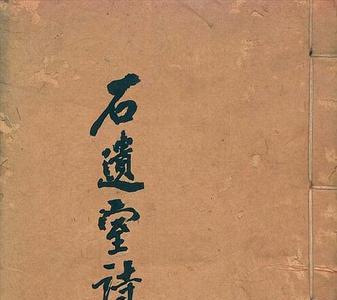 石遺室詩